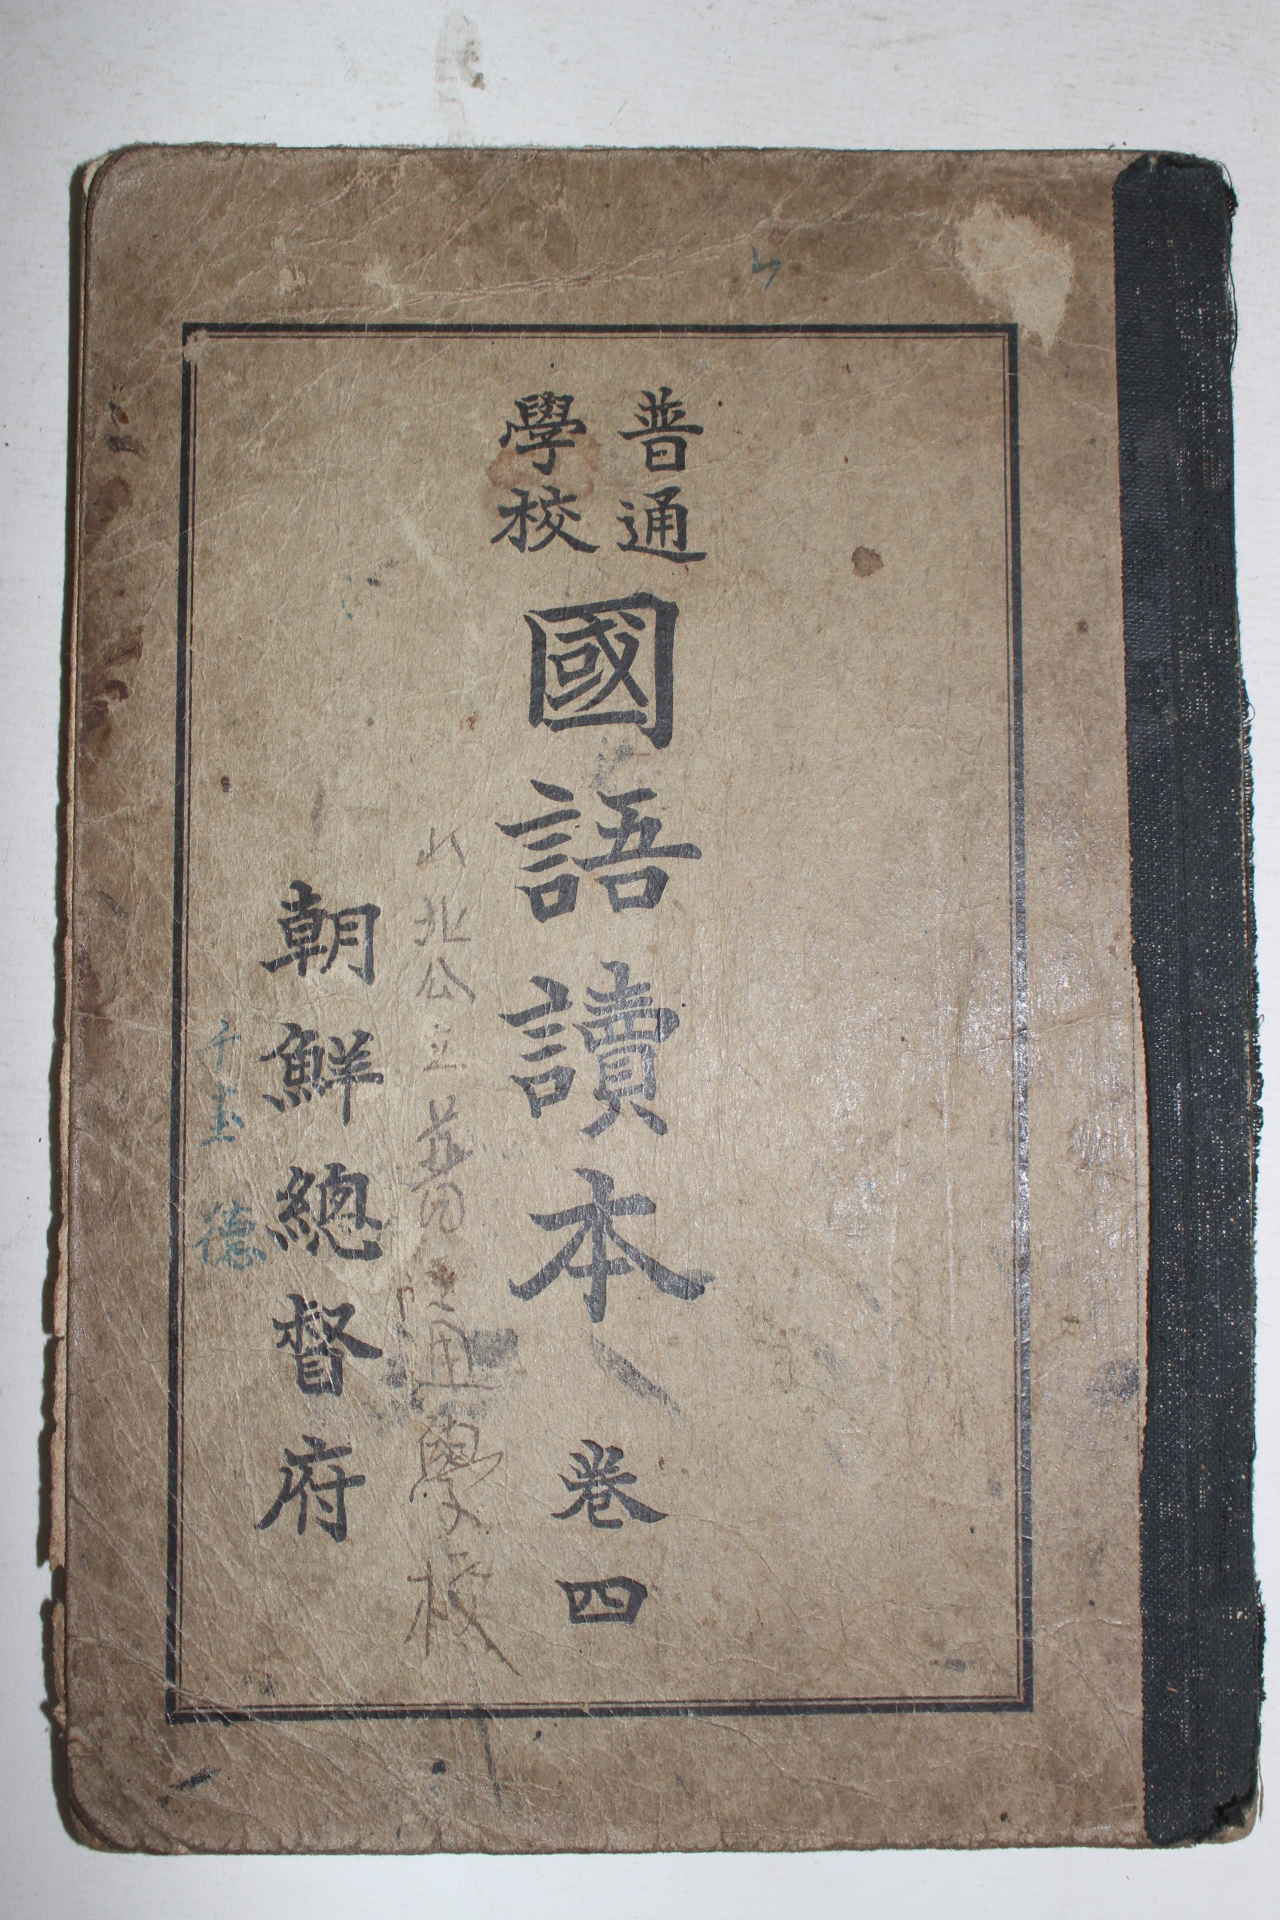 普通
學校
國語讀本 卷四
北公立普通學校
朝鮮總督府
德